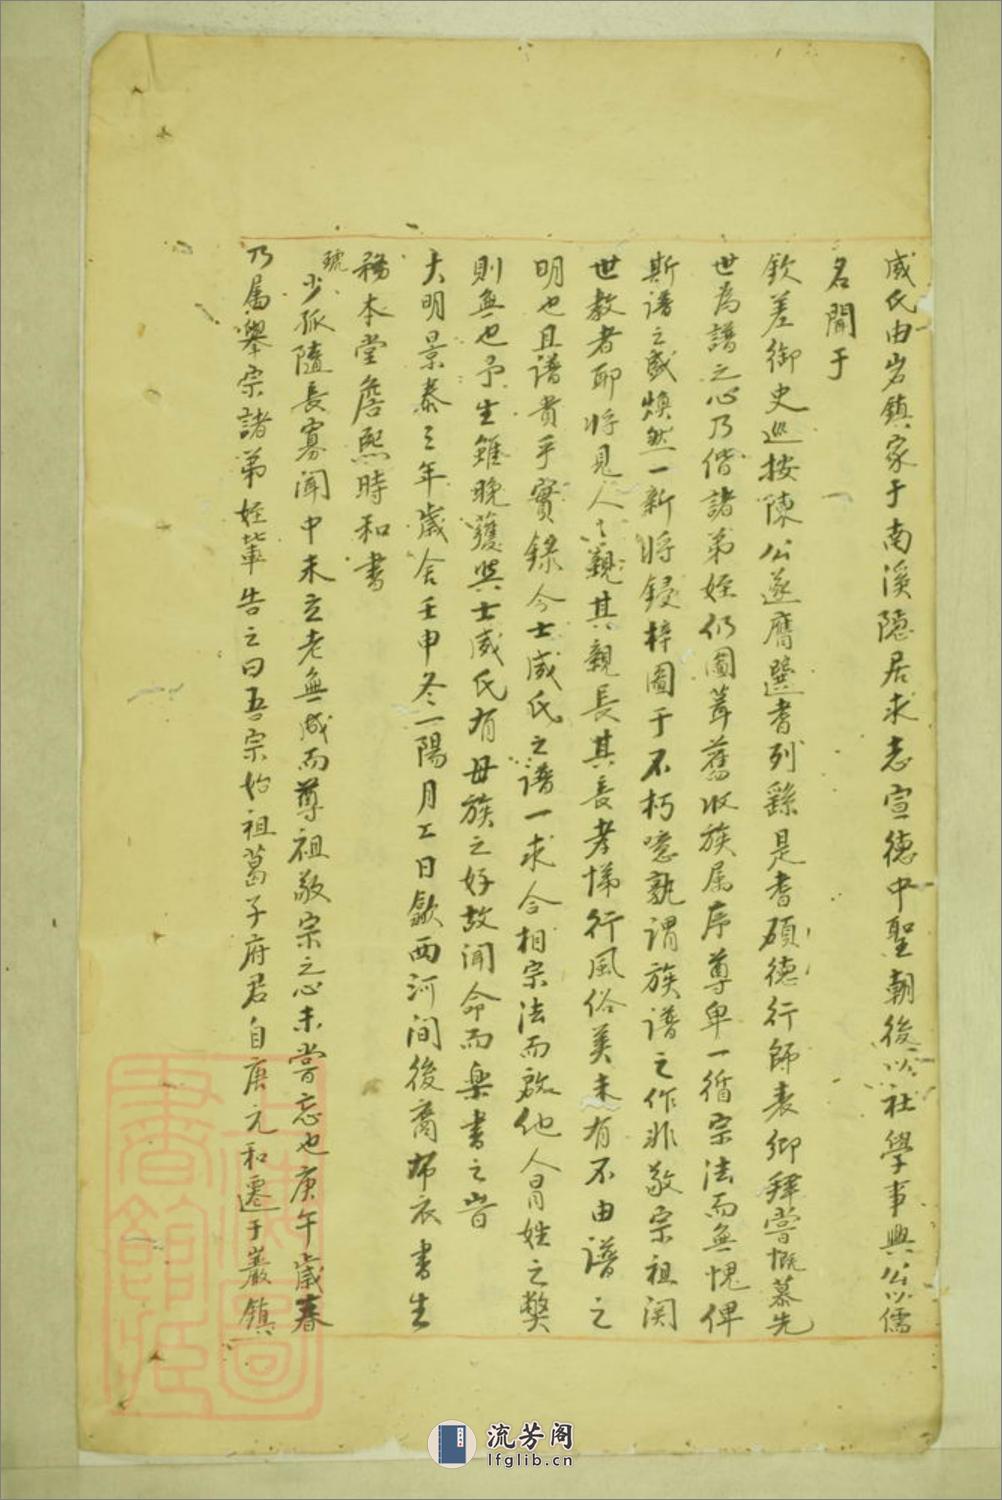 威氏由岩鎮家于南溪隱居求志宣德中聖朝後以社學事興公以儒
名聞于
欽差御史巡按陳公遂膺選耆列繇是耆碩德行師表鄉拜嘗慨慕先
世為譜之心乃偕諸弟姪仍圖葺舊收族属序尊卑一循宗法而無愧俾
斯譜之威煥然一新將鋟梓圖于不朽噫孰謂族譜之作非敬宗祖関
世教者耶將見人々親其親長其長孝悌行風俗美未有不由譜之
明也且譜貴乎實錄今士威氏之譜一求合相宗法而啟他人冒姓之獘
則無也予生雖晚獲與士威氏有母族之好故聞命而樂書之旹
大明景泰三年歲舍壬申冬一陽月工日歙西河間後裔布衣書生
務本堂詹熙時和書
琥少孤隨長寡聞中未立老無成而尊祖敬宗之心未嘗忘也庚午歲春
乃属舉宗諸弟姪輩告之曰吾宗始祖葛子府君自唐元和遷于巖鎮
上海圖書館藏
流芳阁
lfglib.cn